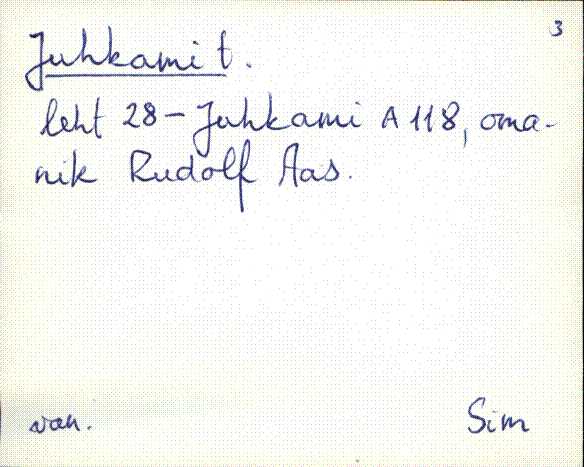 3
Juhkami t.
leht 28 - Juhkami A 118, oma-
nik Rudolf Aas.
van. Sim